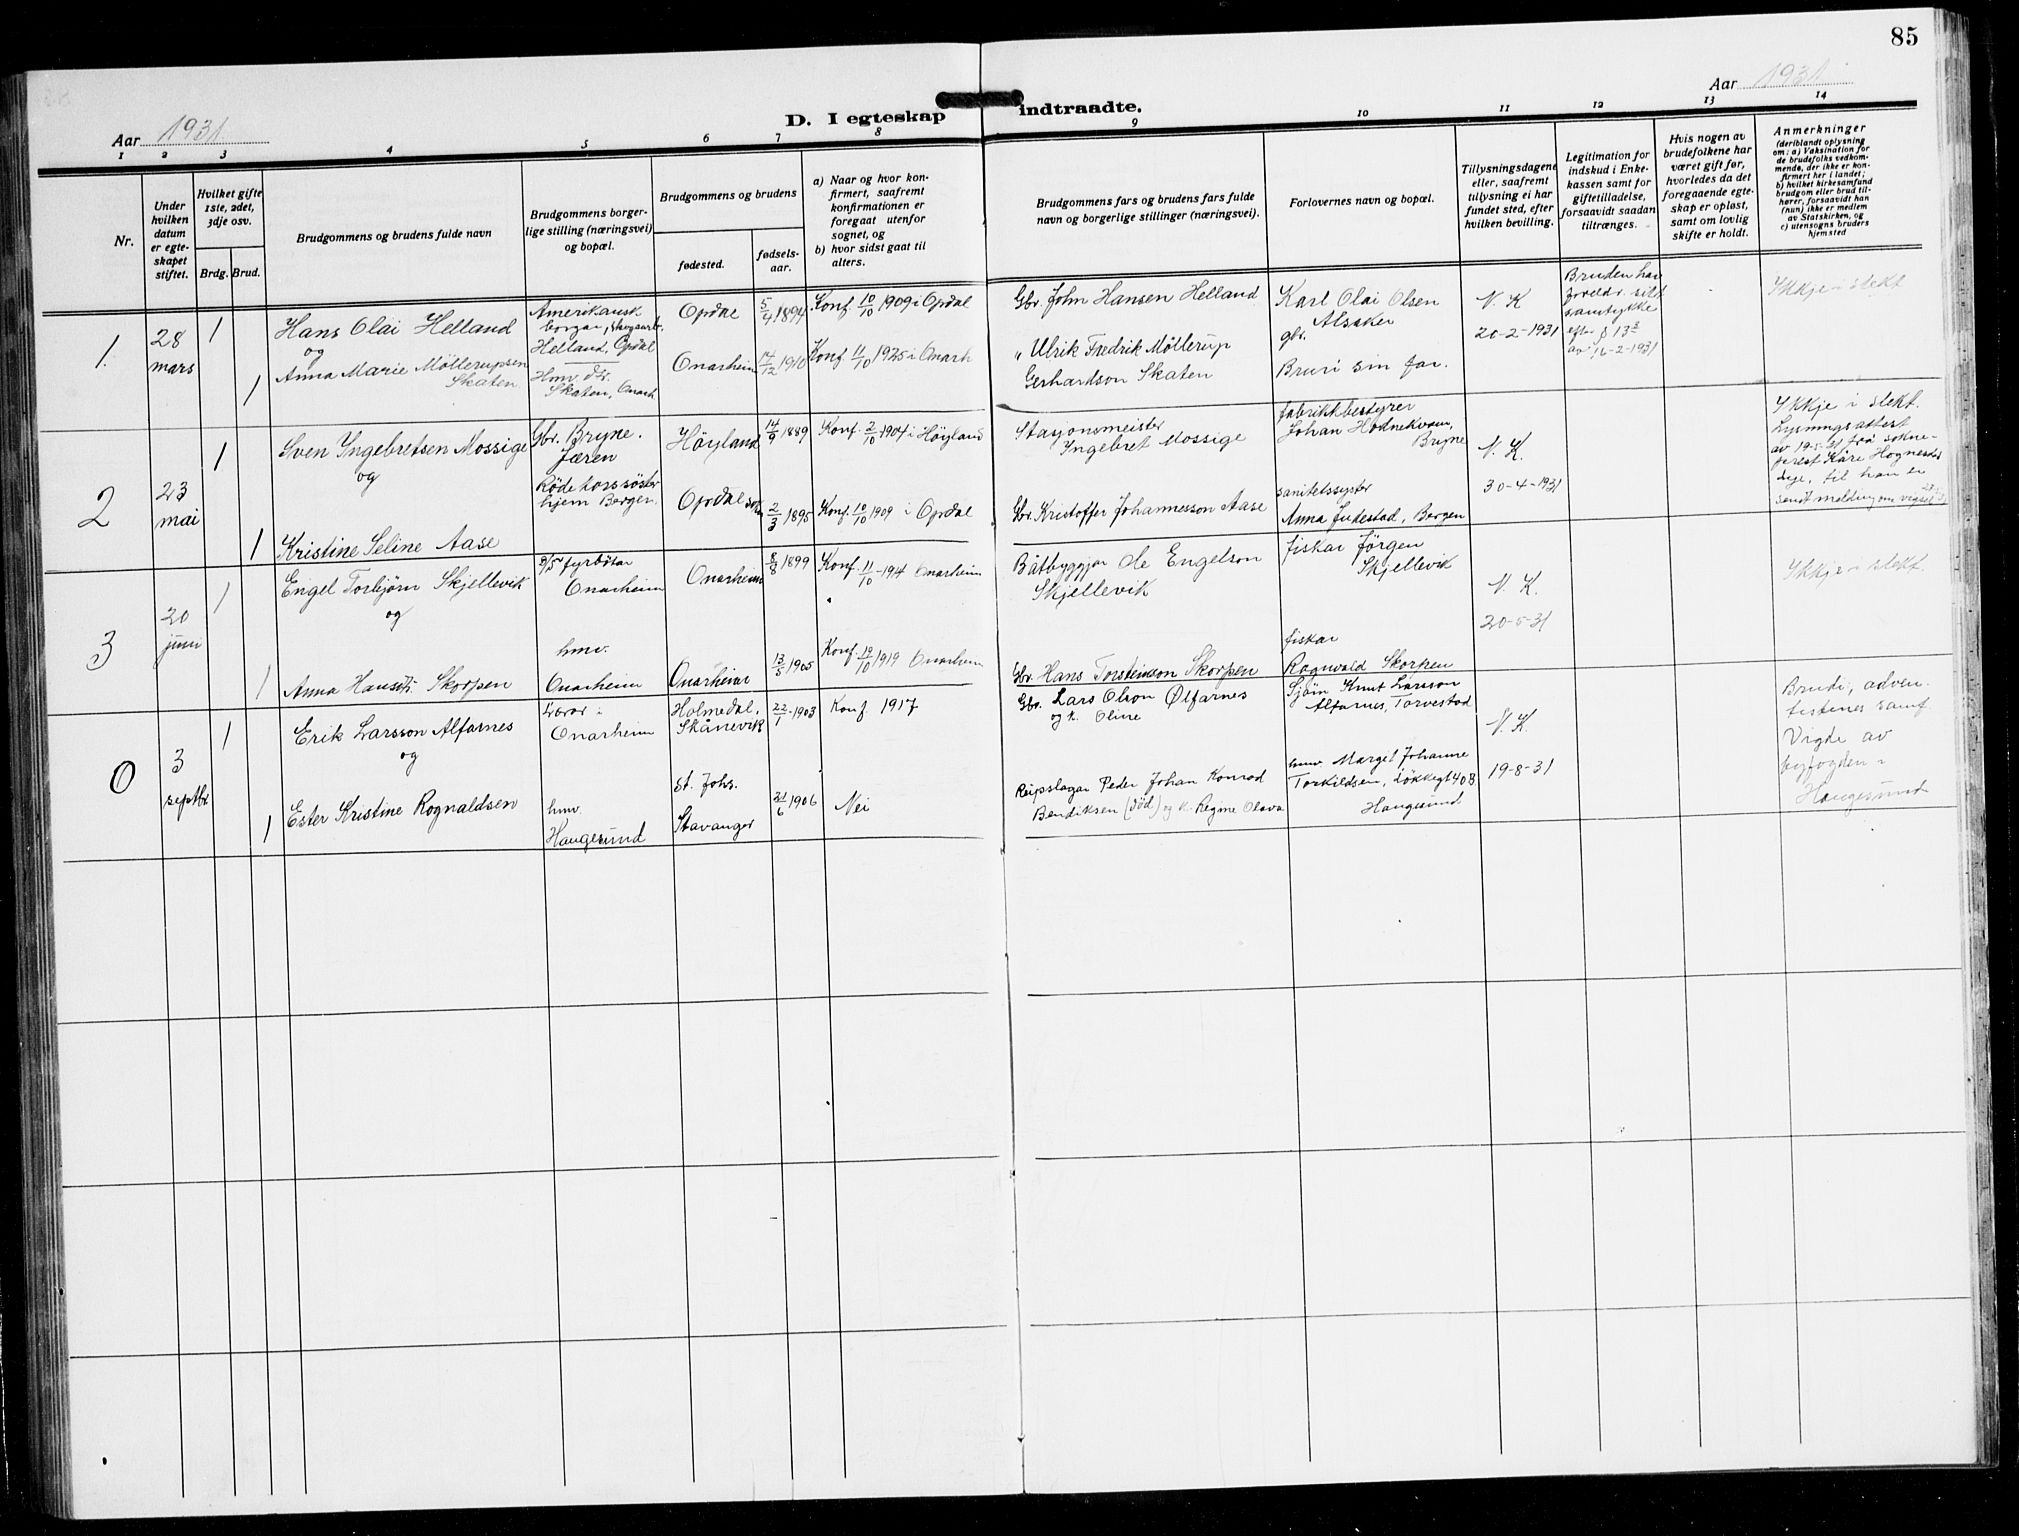 85
Aar 1931
D. I egteskap indtraadte.
Aar 1931
1 2 3 4 5 6 7 8 9 10 11 12 13 14
Nr.
Under hvilken datum er egte-skapet stiftet.
Hvilket gifte 1ste, 2det, 3dje osv.
Brdg. Brud.
Brudgommens og brudens fulde navn
Brudgommens borger-
lige stilling (næringsvei)
og bopæl.
Brudgommens og brudens
fødested.
fødsels-
aar.
a) Naar og hvor kon-
firmert, saafremt
konfirmationen er
foregaat utenfor
sognet, og
b) hvor sidst gaat til
alters.
Brudgommens fars og brudens fars fulde
navn og borgerlige stillinger (næringsvei).
Forlovernes navn og bopæl.
Tillysningsdagene
eller, saafremt
tillysning ei har
fundet sted, efter
hvilken bevilling.
Legitimation for
indskud i Enke-
kassen samt for
giftetilladelse,
forsaavidt saadan
tiltrænges.
Hvis nogen av
brudefolkene har
været gift før,
hvorledes da det
foregaaende egte-
skap er opløst,
samt om lovlig
skifte er holdt.
Anmerkninger
(deriblandt oplysning
om: a) Vaksination for
de brudefolks vedkom-
mende, der ikke er kon-
firmert her i landet;
b) hvilket kirkesamfund
brudgom eller brud til-
hører, forsaavidt han
(hun) ikke er medlem
av Statskirken, og
c) utensogns bruders
hjemsted
1.
28
mars
1
1
Hans Olai Helland
og
Anna Marie Möllerupsen
Skaten
Amerikansk
borgar, skogsarb.
Helland, Opdal
Hmv. dtr.
Skaten, Onarh
Opdal
Onarheim
5/4 1894
14/12 1910
Konf. 10/10 1909 i Opdal
Konf 11/10 1925 i Onarh
Gbr. John Hansen Helland
" Ulrik Fredrik Möllerup
Gerhardson Skaten
Karl Olai Olsen
Alsaker
gbr.
Bruri sin far.
V. K
20-2-1931
Bruden har
foreldr. sitt
samtykke
efter § 13
av 16-2-1931
Ikkje i slekt
2
23
mai
1
1
Sven Ingebretsen Mossige
og
Kristine Seline Aase
Gbr. Bryne.
Jæren
Röde korssöster
hjem Bergen.
Höyland
Opdal sokn
14/9 1889
2/3 1895
Konf. 2/10 1904 i Höyland
Konf. 10/10 1909 i Opdal
Stasjonsmeister
Ingebret Mossige
Gbr. Kristoffer Johannesson Aase
fabrikkbestyrer
Johan Hodnekvam,
Bryne
sanitetssyster
Anna Indestad, Bergen
V. K.
30-4-1931
Ikkje i slekt.
Lysningsattest
av 19-5-31 frå sokne-
prest Kåre Hognestad
Lye, til han er
sendt melding om vigsel
3
20
juni
1
1
Engel Torbjörn Skjellevik
og
Anna Hansdtr. Skorpen
D/S fyrböter
Onarheim
hmv.
Onarheim
Onarheim
Onarheim
8/8 1899
13/5 1905
Konf. 11/10 -1914 Onarheim
Konf. 12/10 1919 Onarheim
Båtbyggjar Ole Engelson
Skjellevik
Gbr. Hans Torsteinson Skorpen
fiskar Jörgen
Skjellevik
fiskar
Rognvald Skorpen
V. K.
20-5-31
Ikkje i slekt.
0
3
septbr
1
1
Erik Larsson Alfarnes
og
Ester Kristine Rognaldsen
Lærar i
Onarheim
hmv.
Haugesund
Holmedal,
Skånevik
St. Johs.
Stavanger
22/1 1903
21/6 1906
Konf 1917
Nei
Gbr. Lars Olson Ølfarnes
og k. Oline
Reipslagar Peder Johan Konrad
Bendiksen (död) og k. Regine Olava
Sjöm Knut Larsson
Alfarnes, Torvestad
hmv Margit Johanne
Torkildsen, Løkkegt 40B
Haugesund
V. K.
19-8-31
Brudi, adven-
tistenes samf.
Vigde av
byfogden i
Haugesund